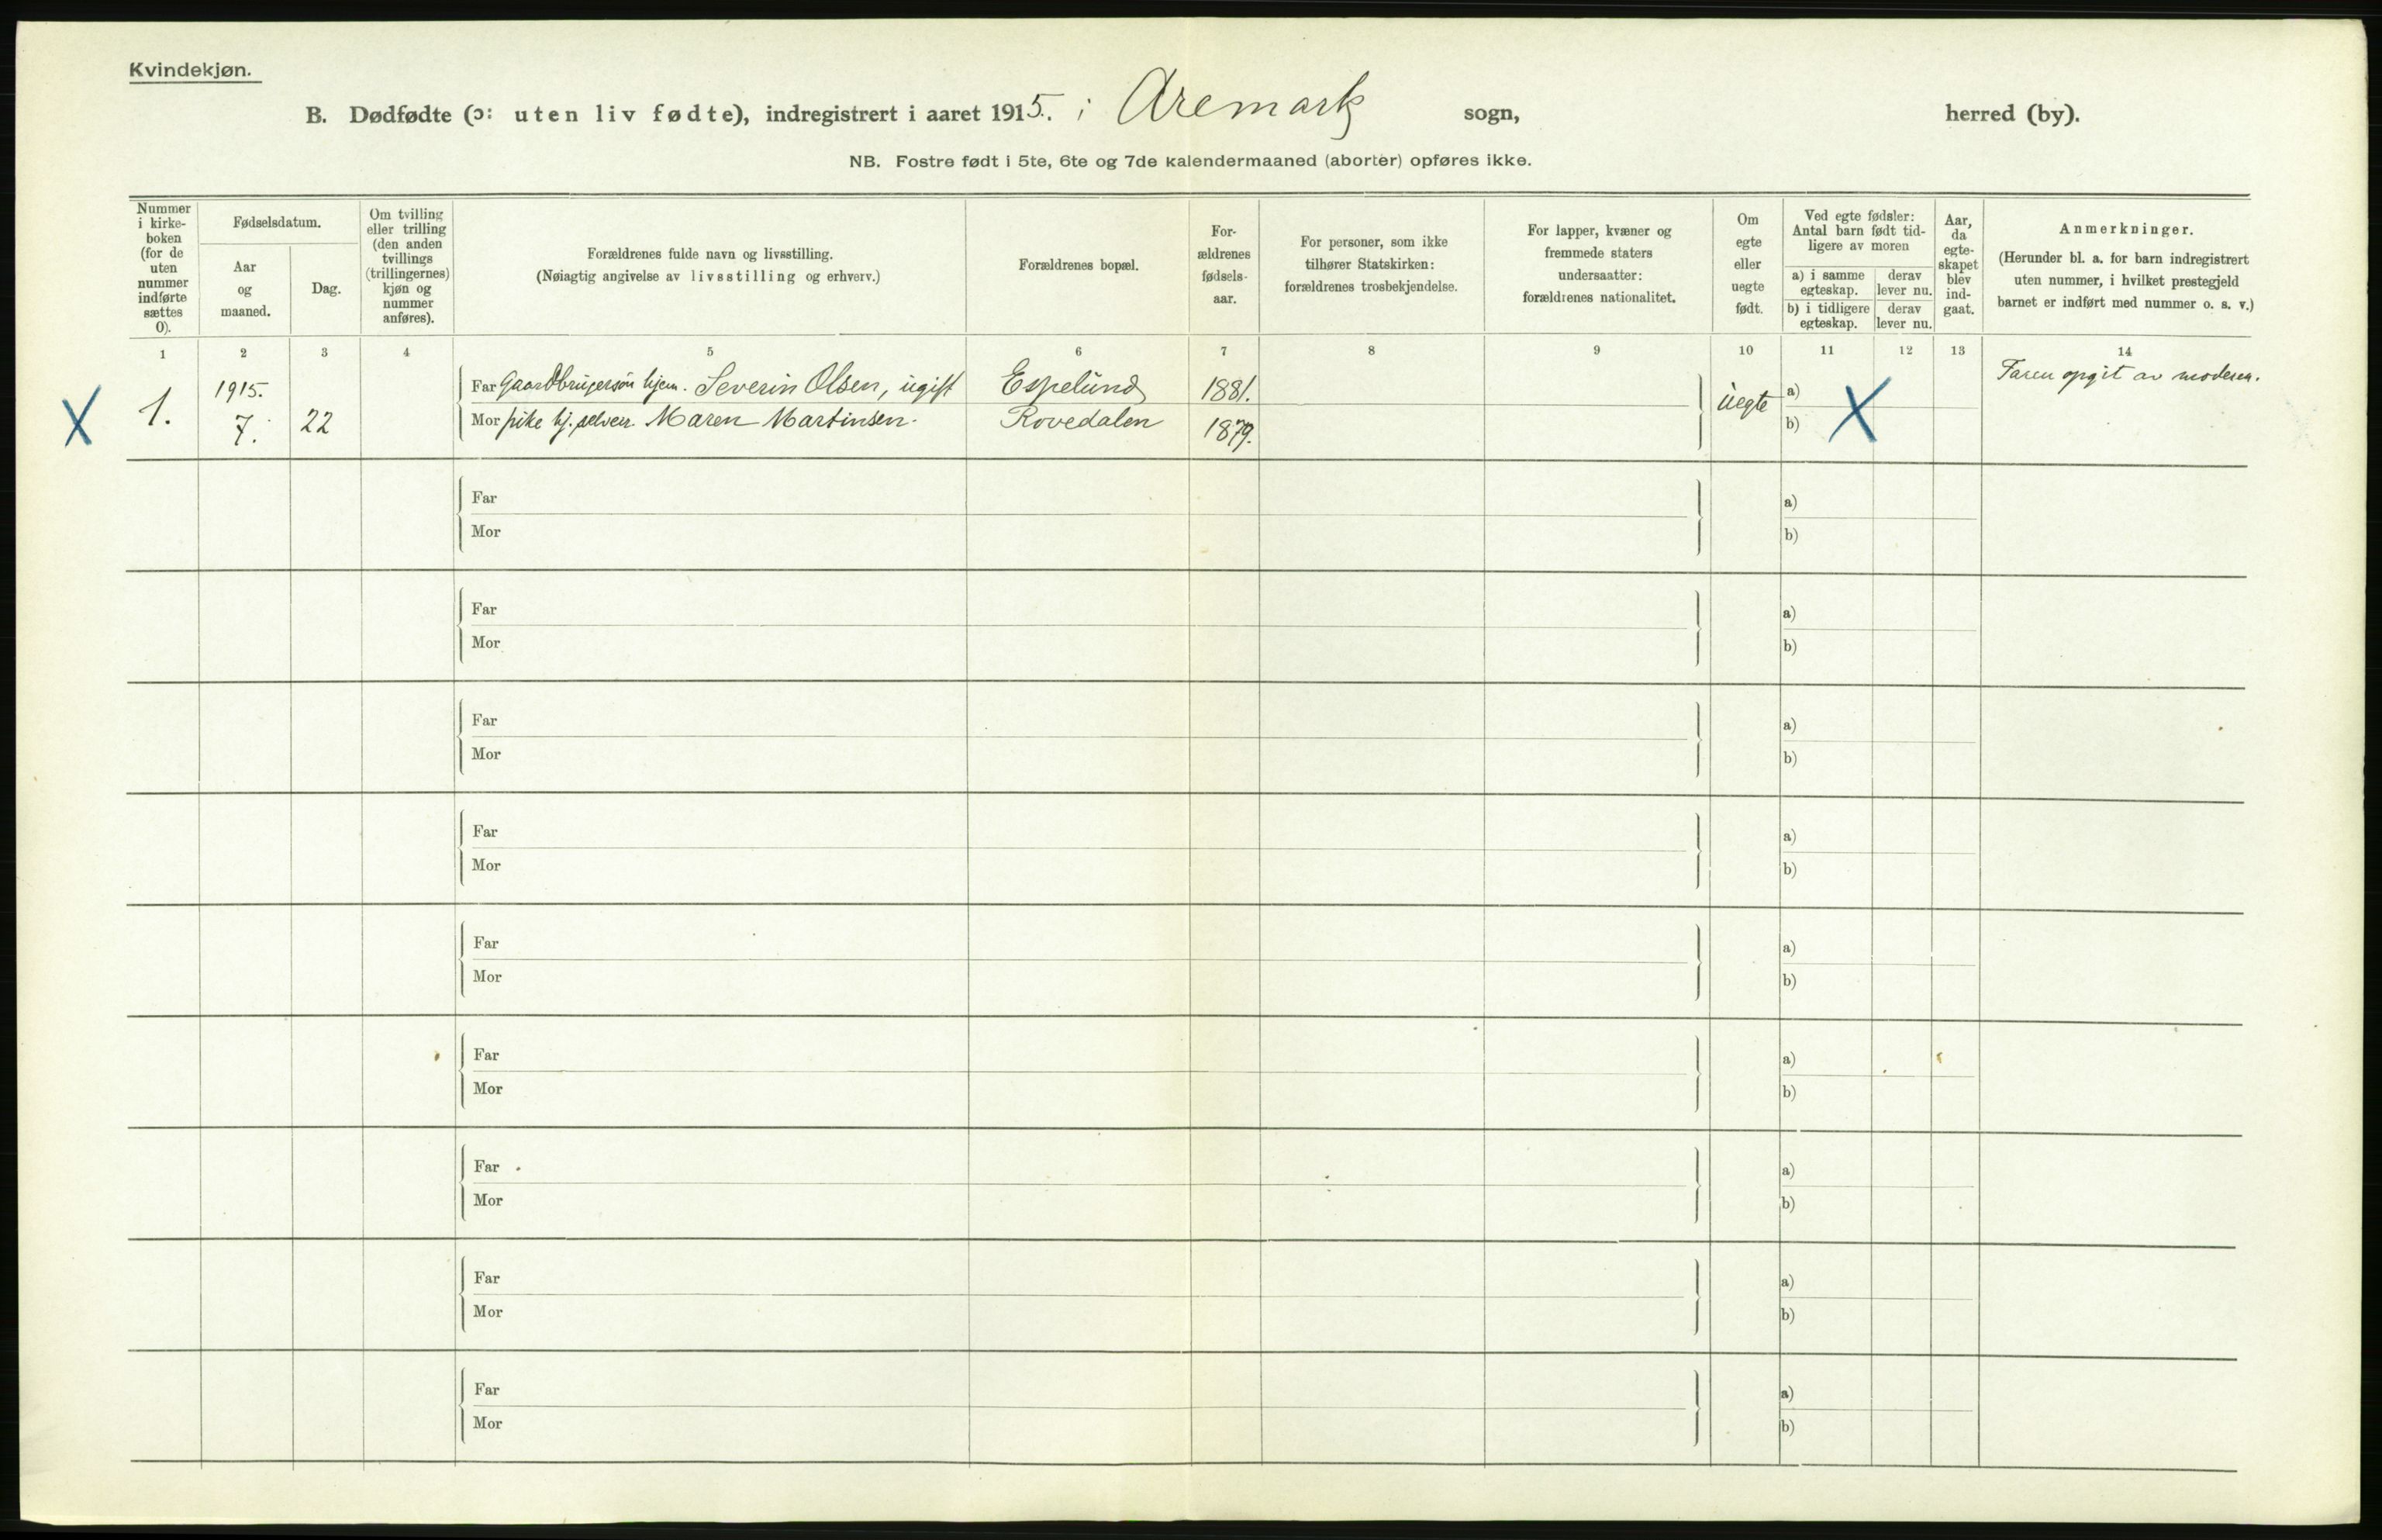 Kvindekjøn.
B. Dødfødte (ɔ: uten liv fødte), indregistrert i aaret 1915. i Aremark sogn, herred (by).
NB. Fostre født i 5te, 6te og 7de kalendermaaned (aborter) opføres ikke.
Nummer i kirke-boken (for de uten nummer indførte sættes 0).
Fødselsdatum.
Aar og maaned.
Dag.
Om tvilling eller trilling (den anden tvillings (trillingernes) kjøn og nummer anføres).
Forældrenes fulde navn og livsstilling.
(Nøiagtig angivelse av livsstilling og erhverv.)
Forældrenes bopæl.
For-ældrenes fødsels-aar.
For personer, som ikke tilhører Statskirken: forældrenes trosbekjendelse.
For lapper, kvæner og fremmede staters undersaatter: forældrenes nationalitet.
Om egte eller uegte født.
Ved egte fødsler: Antal barn født tid-ligere av moren
a) i samme egteskap.
derav lever nu.
b) i tidligere egteskap.
derav lever nu.
Aar, da egte-skapet blev ind-gaat.
Anmerkninger.
(Herunder bl. a. for barn indregistrert uten nummer, i hvilket prestegjeld barnet er indført med nummer o. s. v.)
1 2 3 4 5 6 7 8 9 10 11 12 13 14
X 1. 1915. 7. 22
Far Gaardbrugersøn hjem. Severin Olsen, ugift Espelund 1881.
Mor pike hj. Maren Martinsen. Rovedalen 1879.
Uegte a) b) X
Faren opgit av moderen.
Far a)
Mor b)
Far a)
Mor b)
Far a)
Mor b)
Far a)
Mor b)
Far a)
Mor b)
Far a)
Mor b)
Far a)
Mor b)
Far a)
Mor b)
Far a)
Mor b)